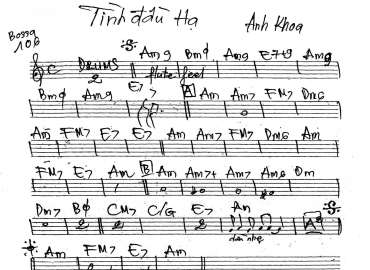 Tình đầu Hạ
Anh Khoa
Bossa
106
DRUMS 2 Am9 BmØ Am9 E7+9 Am9
flute feel
BmØ Am9 E7 A Am Am7 FM7 Dm6
Am FM7 E7 E7 Am Am7 FM7 Dm6 Am
FM7 E7 Am B Am Am7+ Am7 Am6 Dm
Dm7 BØ CM7 C/G E7 Am A²
Am FM7 E7 Am